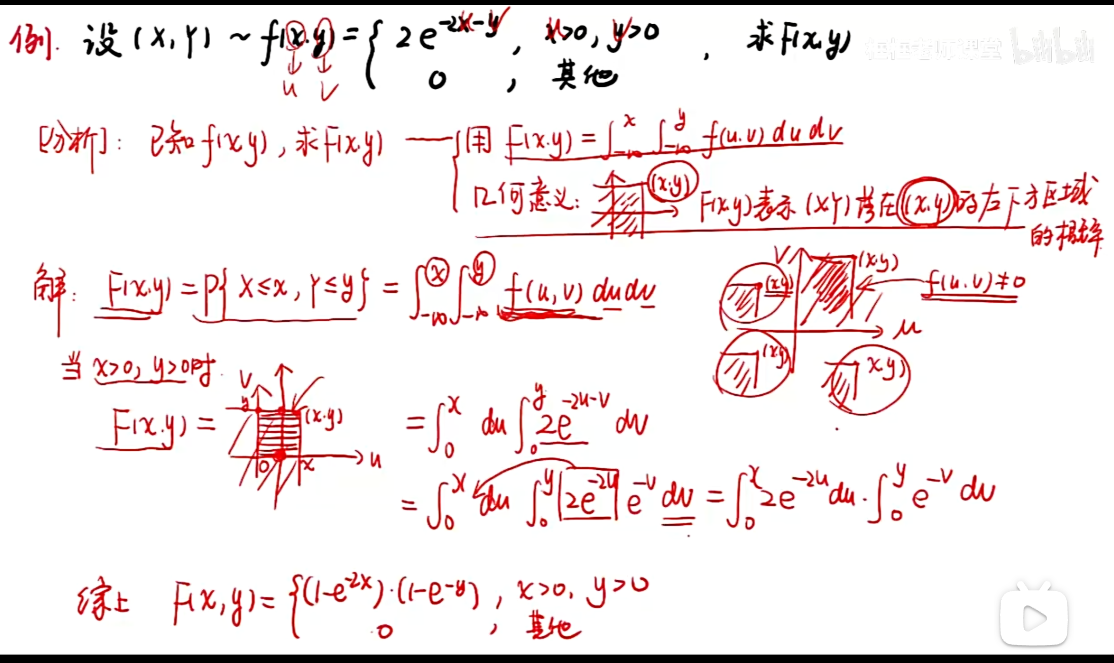 例. 设 (X,Y) ~ f(x,y) = { 2e^{-2x-y}, x>0, y>0
0, 其他 , 求F(x,y)
u v
[分析]: 已知f(x,y), 求F(x,y) — { 用 F(x,y) = ∫_{-∞}^{x} ∫_{-∞}^{y} f(u,v) du dv
几何意义: (x,y) F(x,y)表示(X,Y)落在(x,y)的左下方区域
的概率
解: F(x,y) = P{X≤x, Y≤y} = ∫_{-∞}^{x} ∫_{-∞}^{y} f(u,v) du dv
V (x,y) (x,y) f(u,v)≠0
u
(x,y) (x,y)
当 x>0, y>0时
F(x,y) = V y (x,y) 0 x u = ∫_0^x du ∫_0^y 2e^{-2u-v} dv
= ∫_0^x du ∫_0^y 2e^{-2u} e^{-v} dv = ∫_0^x 2e^{-2u} du · ∫_0^y e^{-v} dv
综上 F(x,y) = { (1-e^{-2x})·(1-e^{-y}), x>0, y>0
0, 其他
bilibili